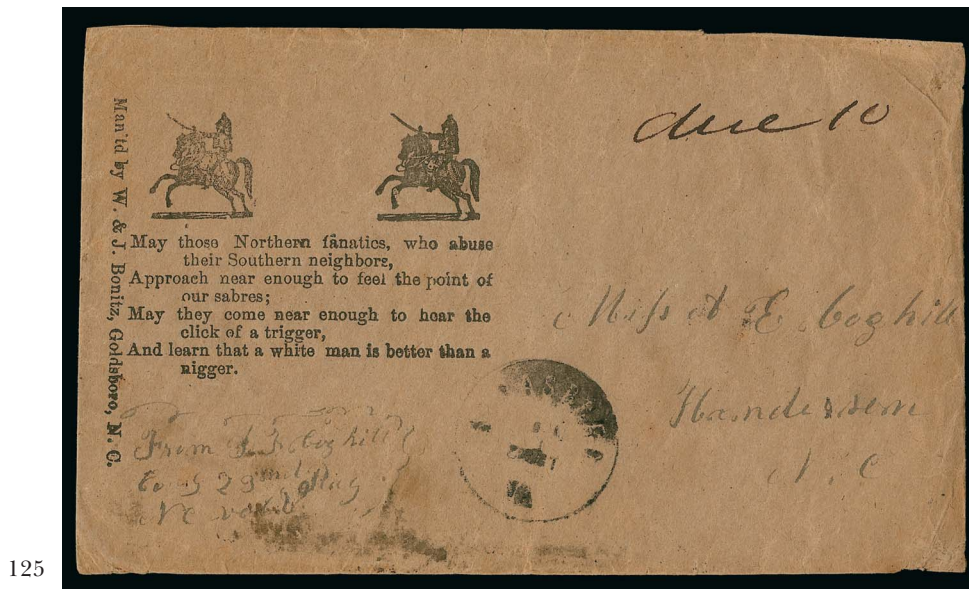 due 10
Man'fd by W. & J. Bonitz, Goldsboro, N. C.
May those Northern fanatics, who abuse
their Southern neighbors,
Approach near enough to feel the point of
our sabres;
May they come near enough to hear the
click of a trigger,
And learn that a white man is better than a
nigger.
Miss A E Coghill
Handerson
N. C
From Coghill
Co 23 Reg
NC
125